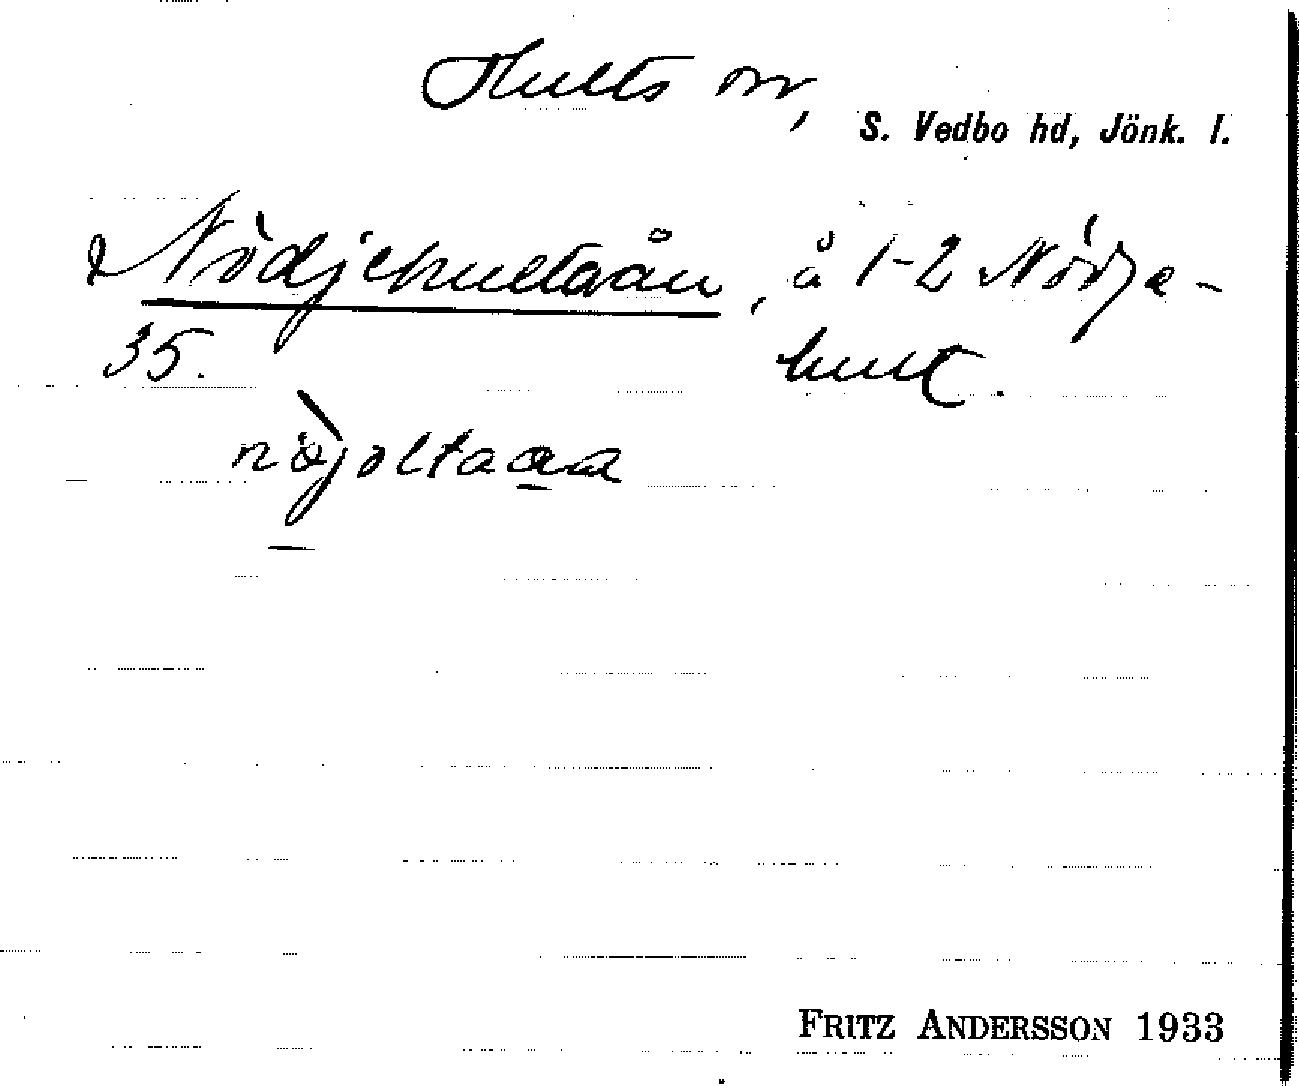 Hults sn,
S. Vedbo hd, Jönk. l.
Nödjehultaån, å 1-2 Nödja-
35. hult.
nöjoltaaa
FRITZ ANDERSSON 1933